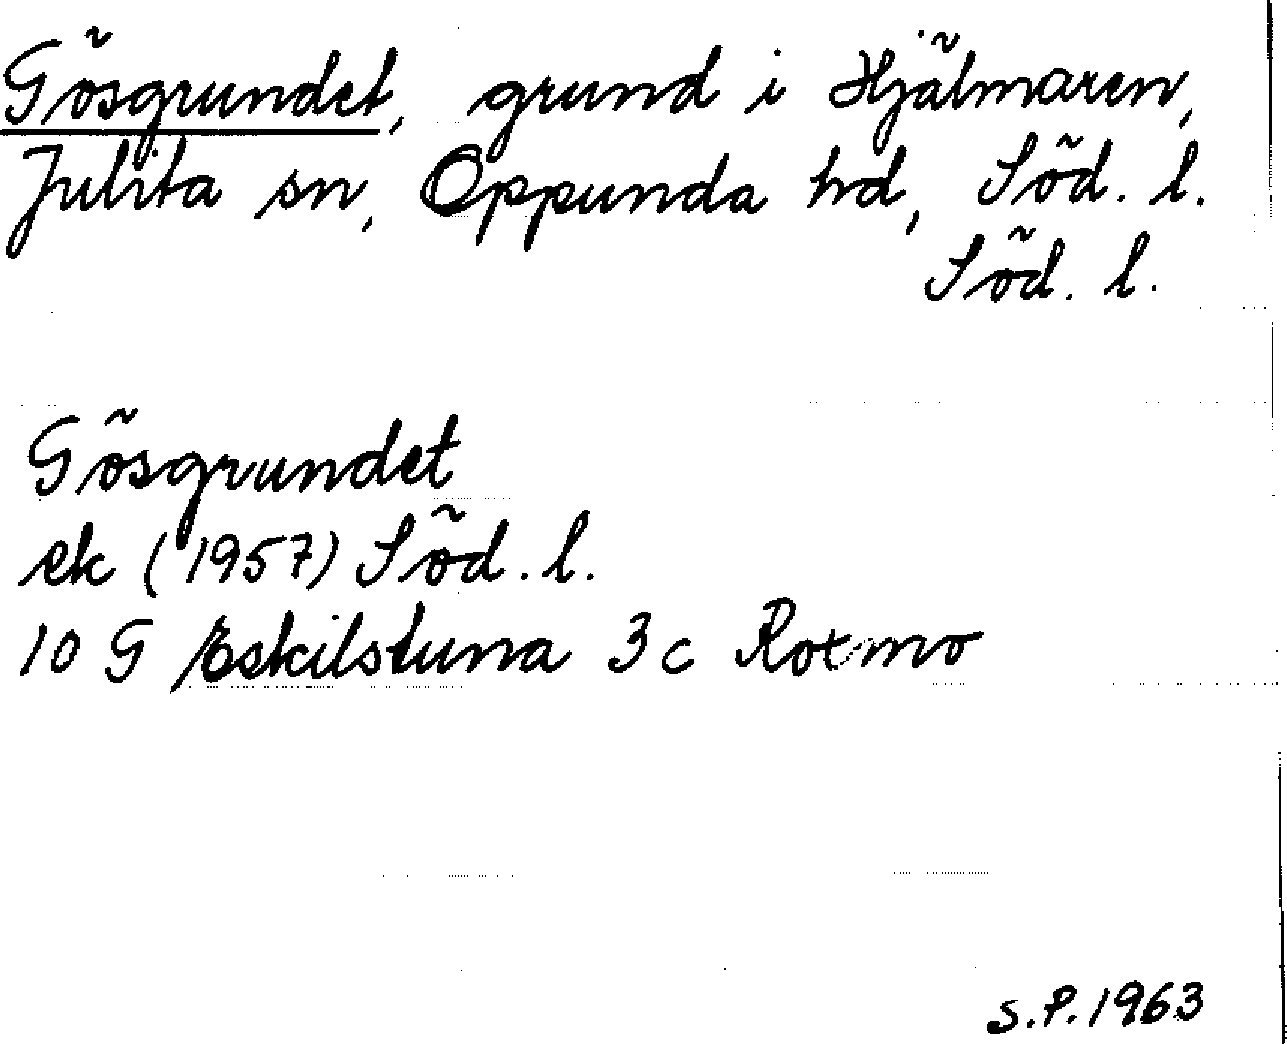 Gösgrundet, grund i Hjälmaren,
Julita sn, Oppunda hd, Söd. l.
Söd. l.
Gösgrundet
ek (1957) Söd. l.
10 G Eskilstuna 3 c Rotmo
S.P. 1963